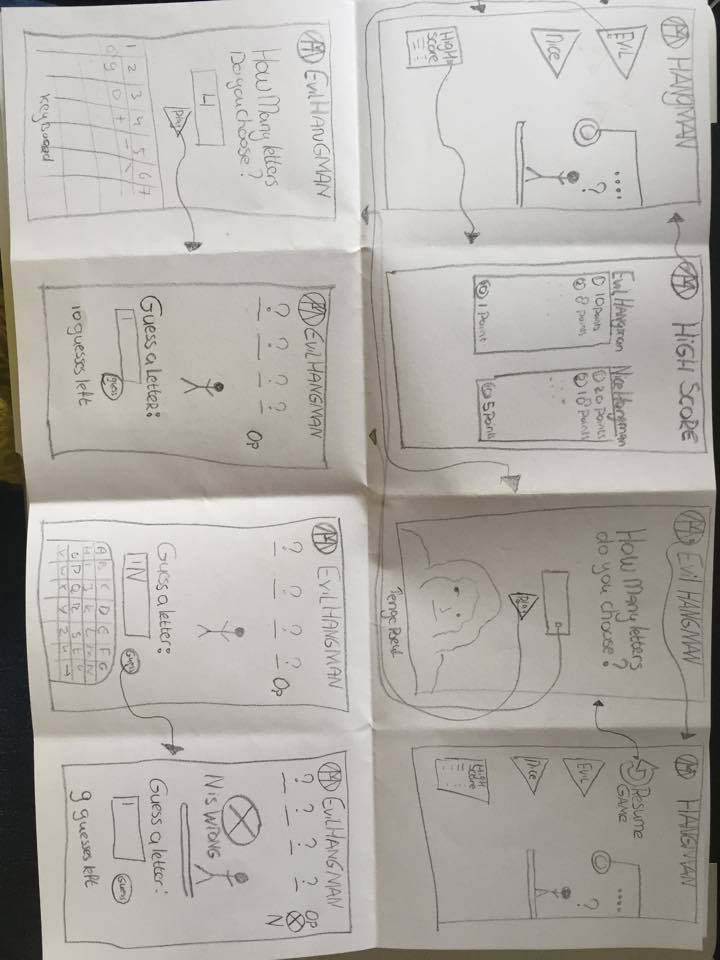 HANGMAN
....
?
EVIL
Nice
High
Score
HIGH SCORE
Evil Hangman
10 points
8 points
1 point
Nice Hangman
20 points
18 points
5 points
EVIL HANGMAN
How Many letters
do you choose?
Play
HANGMAN
RESUME
GAME
....
?
EVIL
Nice
High
Score
EVIL HANGMAN
How Many letters
Do you choose?
4
play
1 2 3 4 5 6 7
8 9 0 + -
Keyboard
EVIL HANGMAN
0p
? ? ? ?
Guess a letter:
guess
10 guesses left
EVIL HANGMAN
0p
? ? ? ?
Guess a letter:
N
Guess
A B C D E F G
H I J K L M N
O P Q R S T U
EVIL HANGMAN
0p
N
? ? ? ?
N is WRONG
Guess a letter:
Guess
9 guesses left